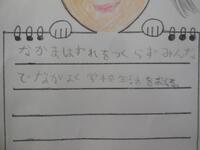 なかまはずれをつくらずみんな
でなかよく学校生活をおくる。